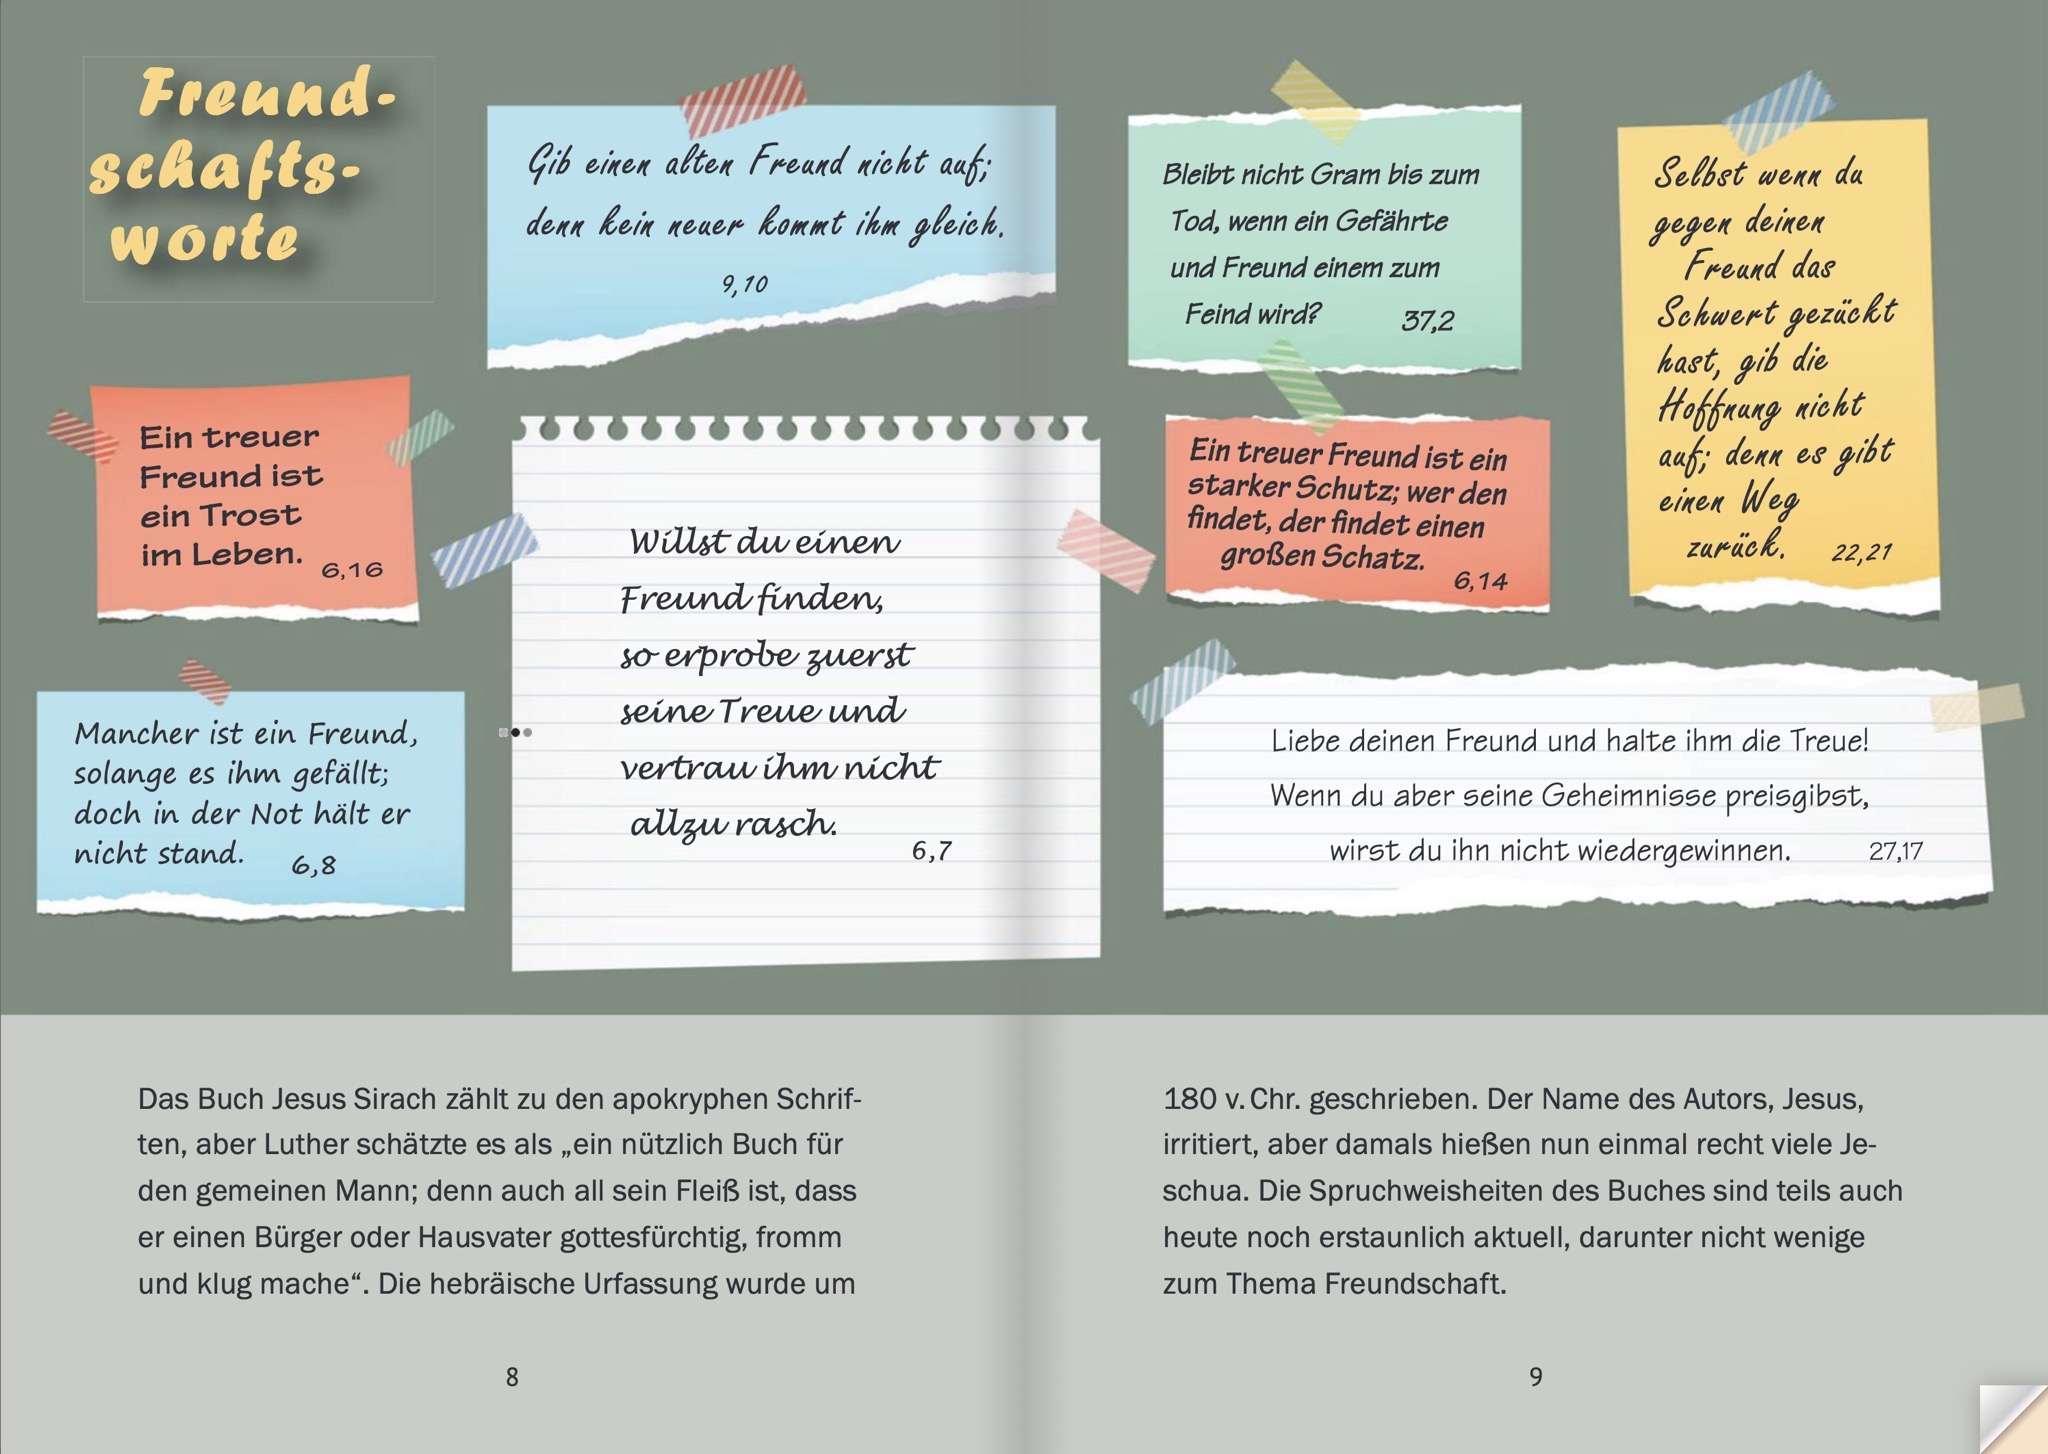 Freund-
schafts-
worte
Gib einen alten Freund nicht auf;
denn kein neuer kommt ihm gleich.
9,10
Ein treuer
Freund ist
ein Trost
im Leben.
6,16
Willst du einen
Freund finden,
so erprobe zuerst
seine Treue und
vertrau ihm nicht
allzu rasch.
6,7
Mancher ist ein Freund,
solange es ihm gefällt;
doch in der Not hält er
nicht stand.
6,8
Bleibt nicht Gram bis zum
Tod, wenn ein Gefährte
und Freund einem zum
Feind wird?
37,2
Selbst wenn du
gegen deinen
Freund das
Schwert gezückt
hast, gib die
Hoffnung nicht
auf; denn es gibt
einen Weg
zurück.
22,21
Ein treuer Freund ist ein
starker Schutz; wer den
findet, der findet einen
großen Schatz.
6,14
Liebe deinen Freund und halte ihm die Treue!
Wenn du aber seine Geheimnisse preisgibst,
wirst du ihn nicht wiedergewinnen.
27,17
Das Buch Jesus Sirach zählt zu den apokryphen Schrif-
ten, aber Luther schätzte es als „ein nützlich Buch für
den gemeinen Mann; denn auch all sein Fleiß ist, dass
er einen Bürger oder Hausvater gottesfürchtig, fromm
und klug mache“. Die hebräische Urfassung wurde um
8
180 v. Chr. geschrieben. Der Name des Autors, Jesus,
irritiert, aber damals hießen nun einmal recht viele Je-
schua. Die Spruchweisheiten des Buches sind teils auch
heute noch erstaunlich aktuell, darunter nicht wenige
zum Thema Freundschaft.
9